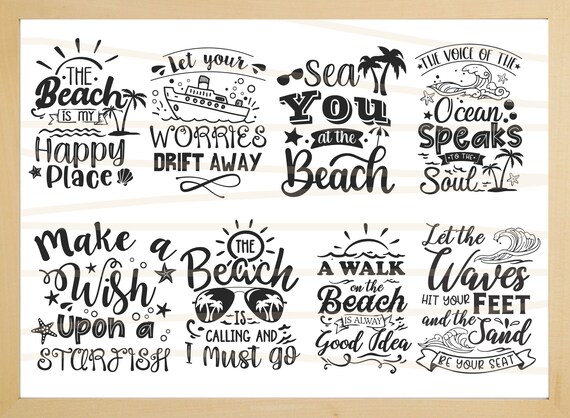 THE
Beach
IS MY
Happy
Place
Let your
WORRIES
DRIFT AWAY
Sea
You
at the
Beach
THE VOICE OF THE
Ocean
Speaks
TO THE
Soul
Make a
Wish
Upon a
STARFISH
THE
Beach
IS
CALLING AND
I must go
A WALK
on the
Beach
IS ALWAY
Good Idea
Let the
Waves
HIT YOUR FEET
and the Sand
BE YOUR SEAT